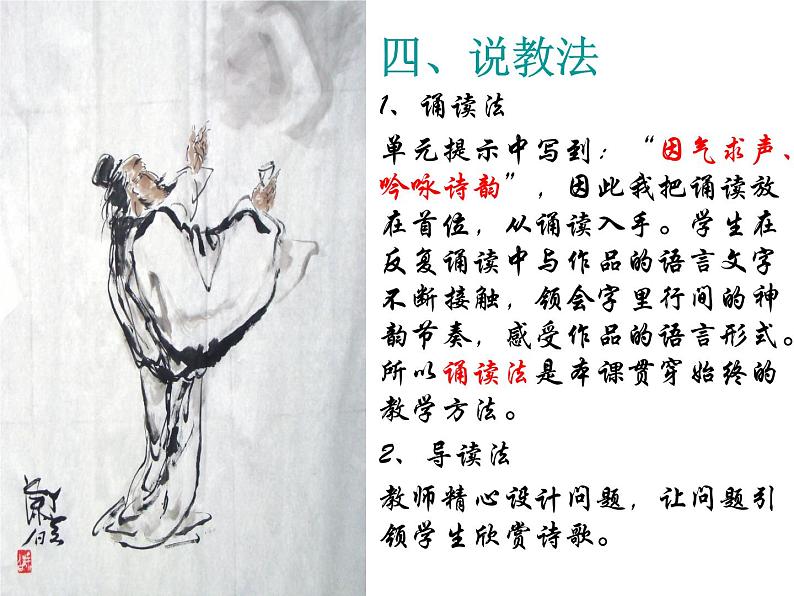 四、说教法
1、诵读法
单元提示中写到：“因气求声、
吟咏诗韵”，因此我把诵读放
在首位，从诵读入手。学生在
反复诵读中与作品的语言文字
不断接触，领会字里行间的神
韵节奏，感受作品的语言形式。
所以诵读法是本课贯穿始终的
教学方法。
2、导读法
教师精心设计问题，让问题引
领学生欣赏诗歌。